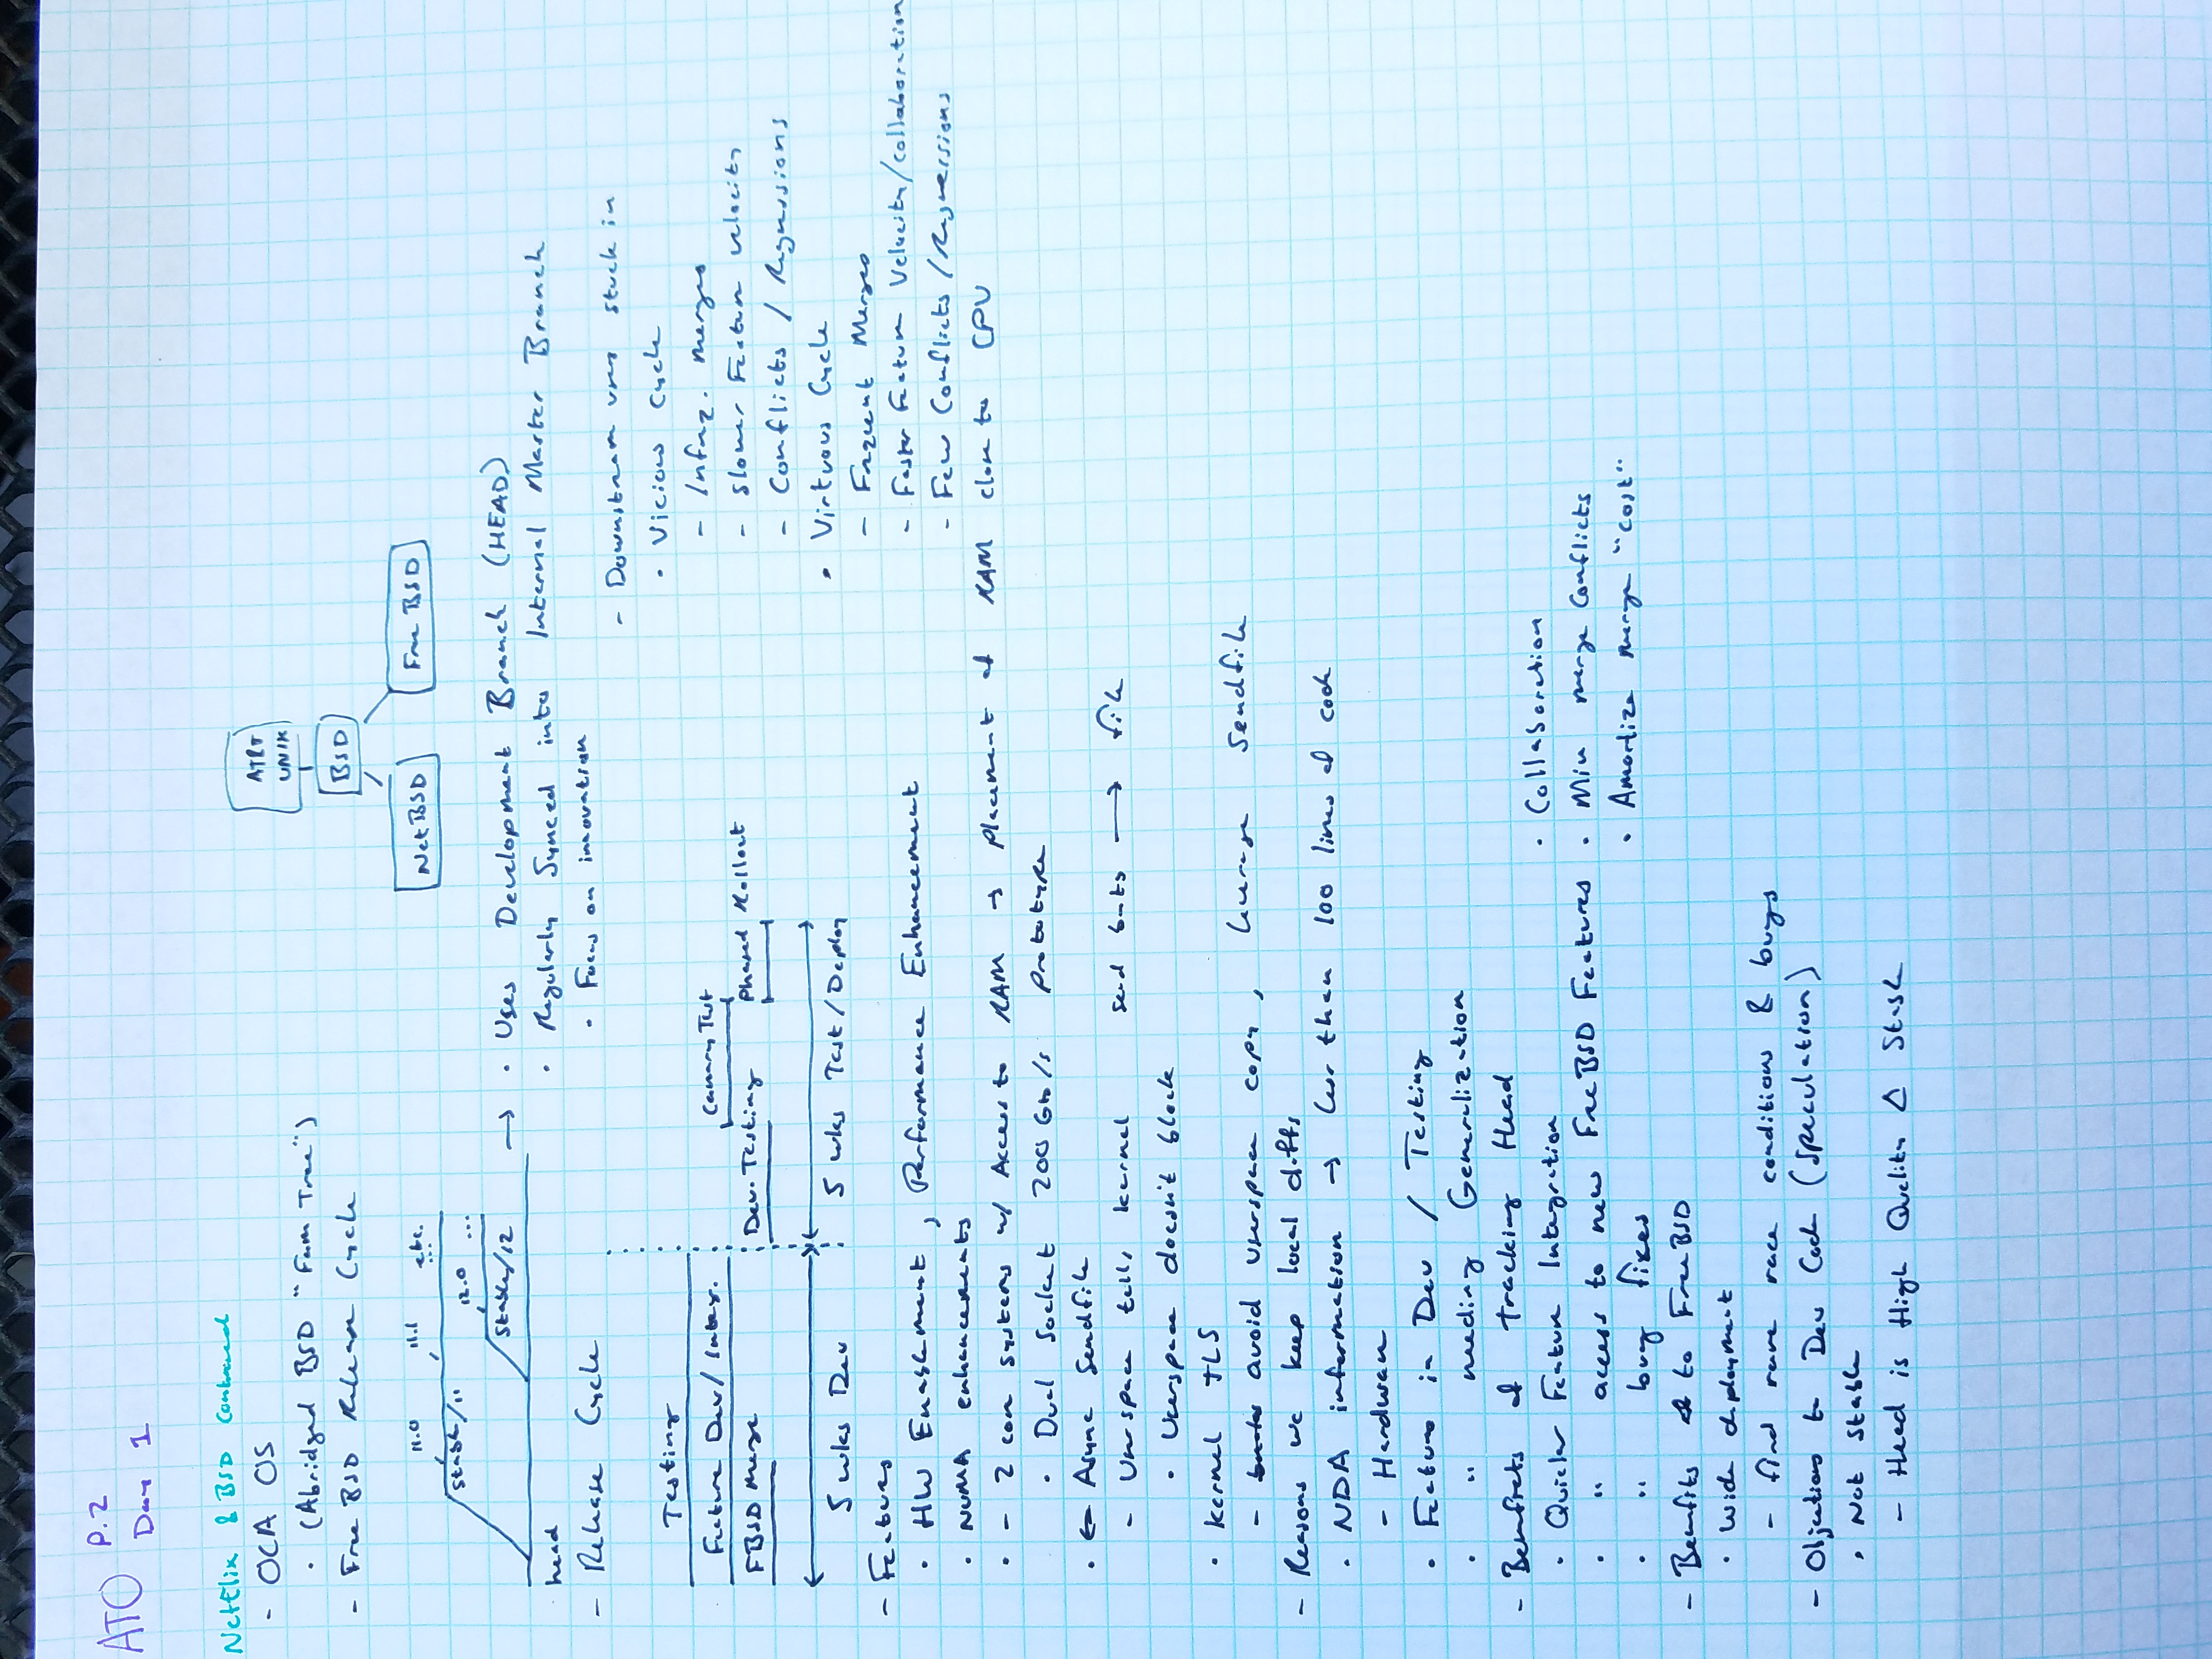 ATO P.2
Day 1
Netflix & BSD Continued
- OCA OS
· (Abridged BSD "Fam Tree")
- Free BSD Release Cycle
AT&T
UNIX
BSD
NetBSD
Free BSD
11.0 11.1 etc.
...
Stable/11
12.0 ...
Stable/12
head
→ · Uses Development Branch (HEAD)
· Regularly Synced into Internal Master Branch
· Focus on innovation
- Release Cycle
Testing
Feature Dev/Integ.
FBSD Merge
Canary Test
Dev. Testing
Phased Rollout
5 wks Dev
5 wks Test/Deploy
- Downstream users stuck in
· Vicious Cycle
- Infreq. merges
- Slower Feature velocity
- Conflicts / Regressions
· Virtuous Cycle
- Frequent Merges
- Faster Feature Velocity/collaboration
- Few Conflicts / Regressions
- Features
· HW Enablement, Performance Enhancement
· NUMA enhancements
· - 2 core systems w/ Access to RAM → Placement of RAM close to CPU
· Dual Socket 200 Gb/s prototype
· ← Async Sendfile
- Userspace tells kernel send bits → file
· Userspace doesn't block
· Kernel TLS
- avoid userspace copy, leverage Sendfile
- Reasons we keep local diffs
· NDA information → less than 100 lines of code
- Hardware
· Features in Dev / Testing
· " needing Generalization
- Benefiets of tracking Head
· Quicker Feature Integration
· " access to new FreeBSD Features
· " bug fixes
· Collaboration
· Min merge Conflicts
· Amortize merge "cost"
- Benefits to FreeBSD
· Wide deployment
- find rare race conditions & bugs
- Objections to Dev Code (Speculation)
· Not Stable
- Head is High Quality Δ Stable